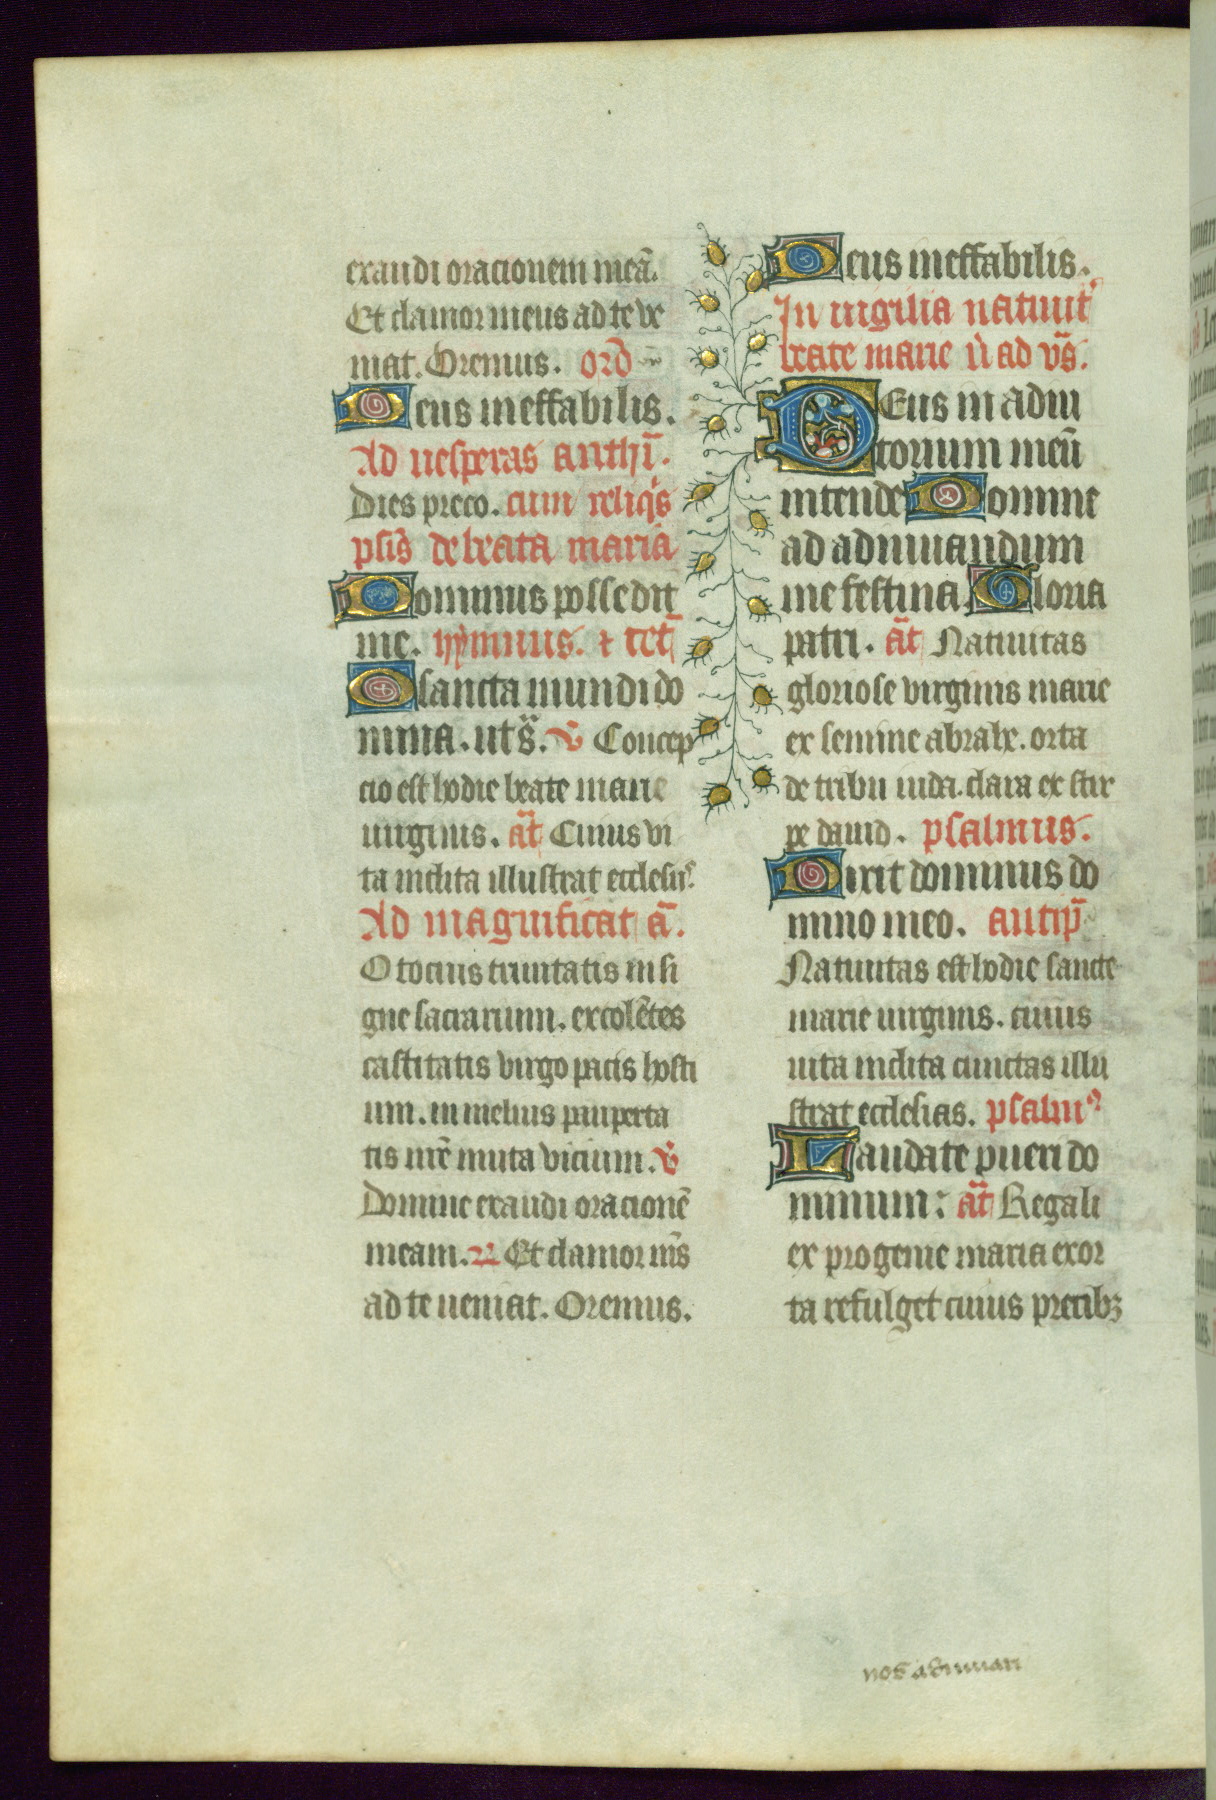 exaudi oracionem meā.
Et clamor meus ad te ve
niat. Oremus. orō
Deus ineffabilis.
Ad uesperas anthī.
Dies preco. cum reliqis
psīs de beata maria
Dominus possedit
me. hymnus. & cet
O sancta mundi do
mina. ut s. v Concep
cio est hodie beate marie
uirginis. at Cuius vi
ta inclita illustrat ecclesi
Ad magnificat a.
O tocius trinitatis insi
gne sacrarium. excolētes
castitatis virgo pacis hosti
um. in melius pauperta
tis nrē muta vicium. v
Domine exaudi oracionē
meam. R Et clamor mēs
ad te ueniat. Oremus.
Deus ineffabilis.
In uigilia natiuit
beate marie v ad vs.
DEus in adiu
torium meū
intende Domine
ad adiuuandum
me festina Gloria
patri. at Natiuitas
gloriose virginis marie
ex semine abrahe. orta
de tribu iuda. clara ex stir
pe dauid. psalmus.
Dixit dominus do
mino meo. antip
Natiuitas est hodie sancte
marie uirginis. cuius
uita inclita cunctas illu
strat ecclesias. psalm
Laudate pueri do
minum: at Regali
ex progenie maria exor
ta refulget cuius precibꝫ